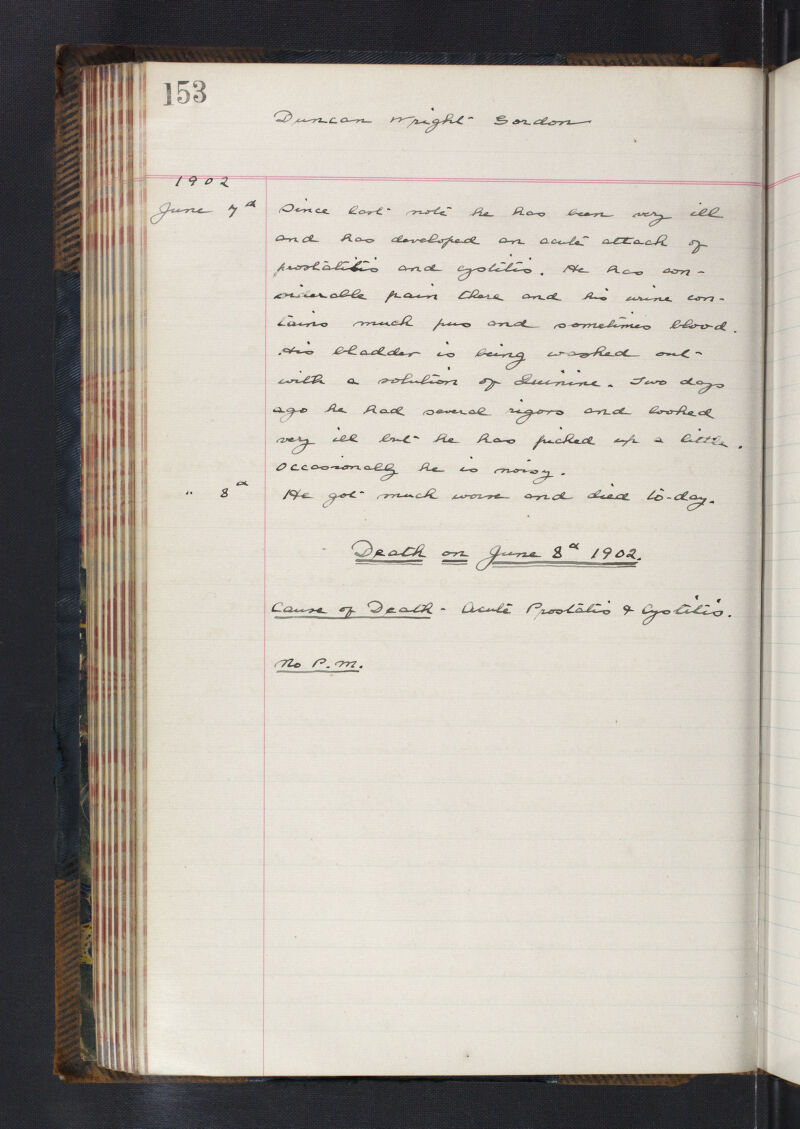 153
Duncan Wright Gordon
1902
June 7th Since last note he has been very ill
and has developed an acute attack of
prostatitis and cystitis. He has con-
siderable pain there and his urine con-
tains much pus and sometimes blood.
His bladder is being washed out
with a solution of Quinine. Two days
ago he had several rigors and looked
very ill but he has picked up a little.
Occasionally he is noisy.
" 8th He got much worse and died to-day.
Death on June 8th 1902.
Cause of Death - Acute Prostatis & Cystitis.
No P.M.